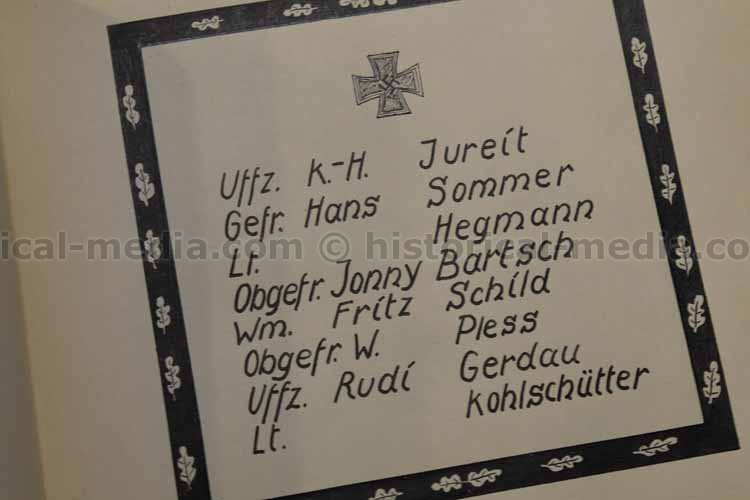 Uffz. K.-H. Jureit
Gefr. Hans Sommer
Lt. Hegmann
Obgefr. Jonny Bartsch
Wm. Fritz Schild
Obgefr. W. Pless
Uffz. Rudi Gerdau
Lt. Kohlschütter
ical-media.com © historical-media.co